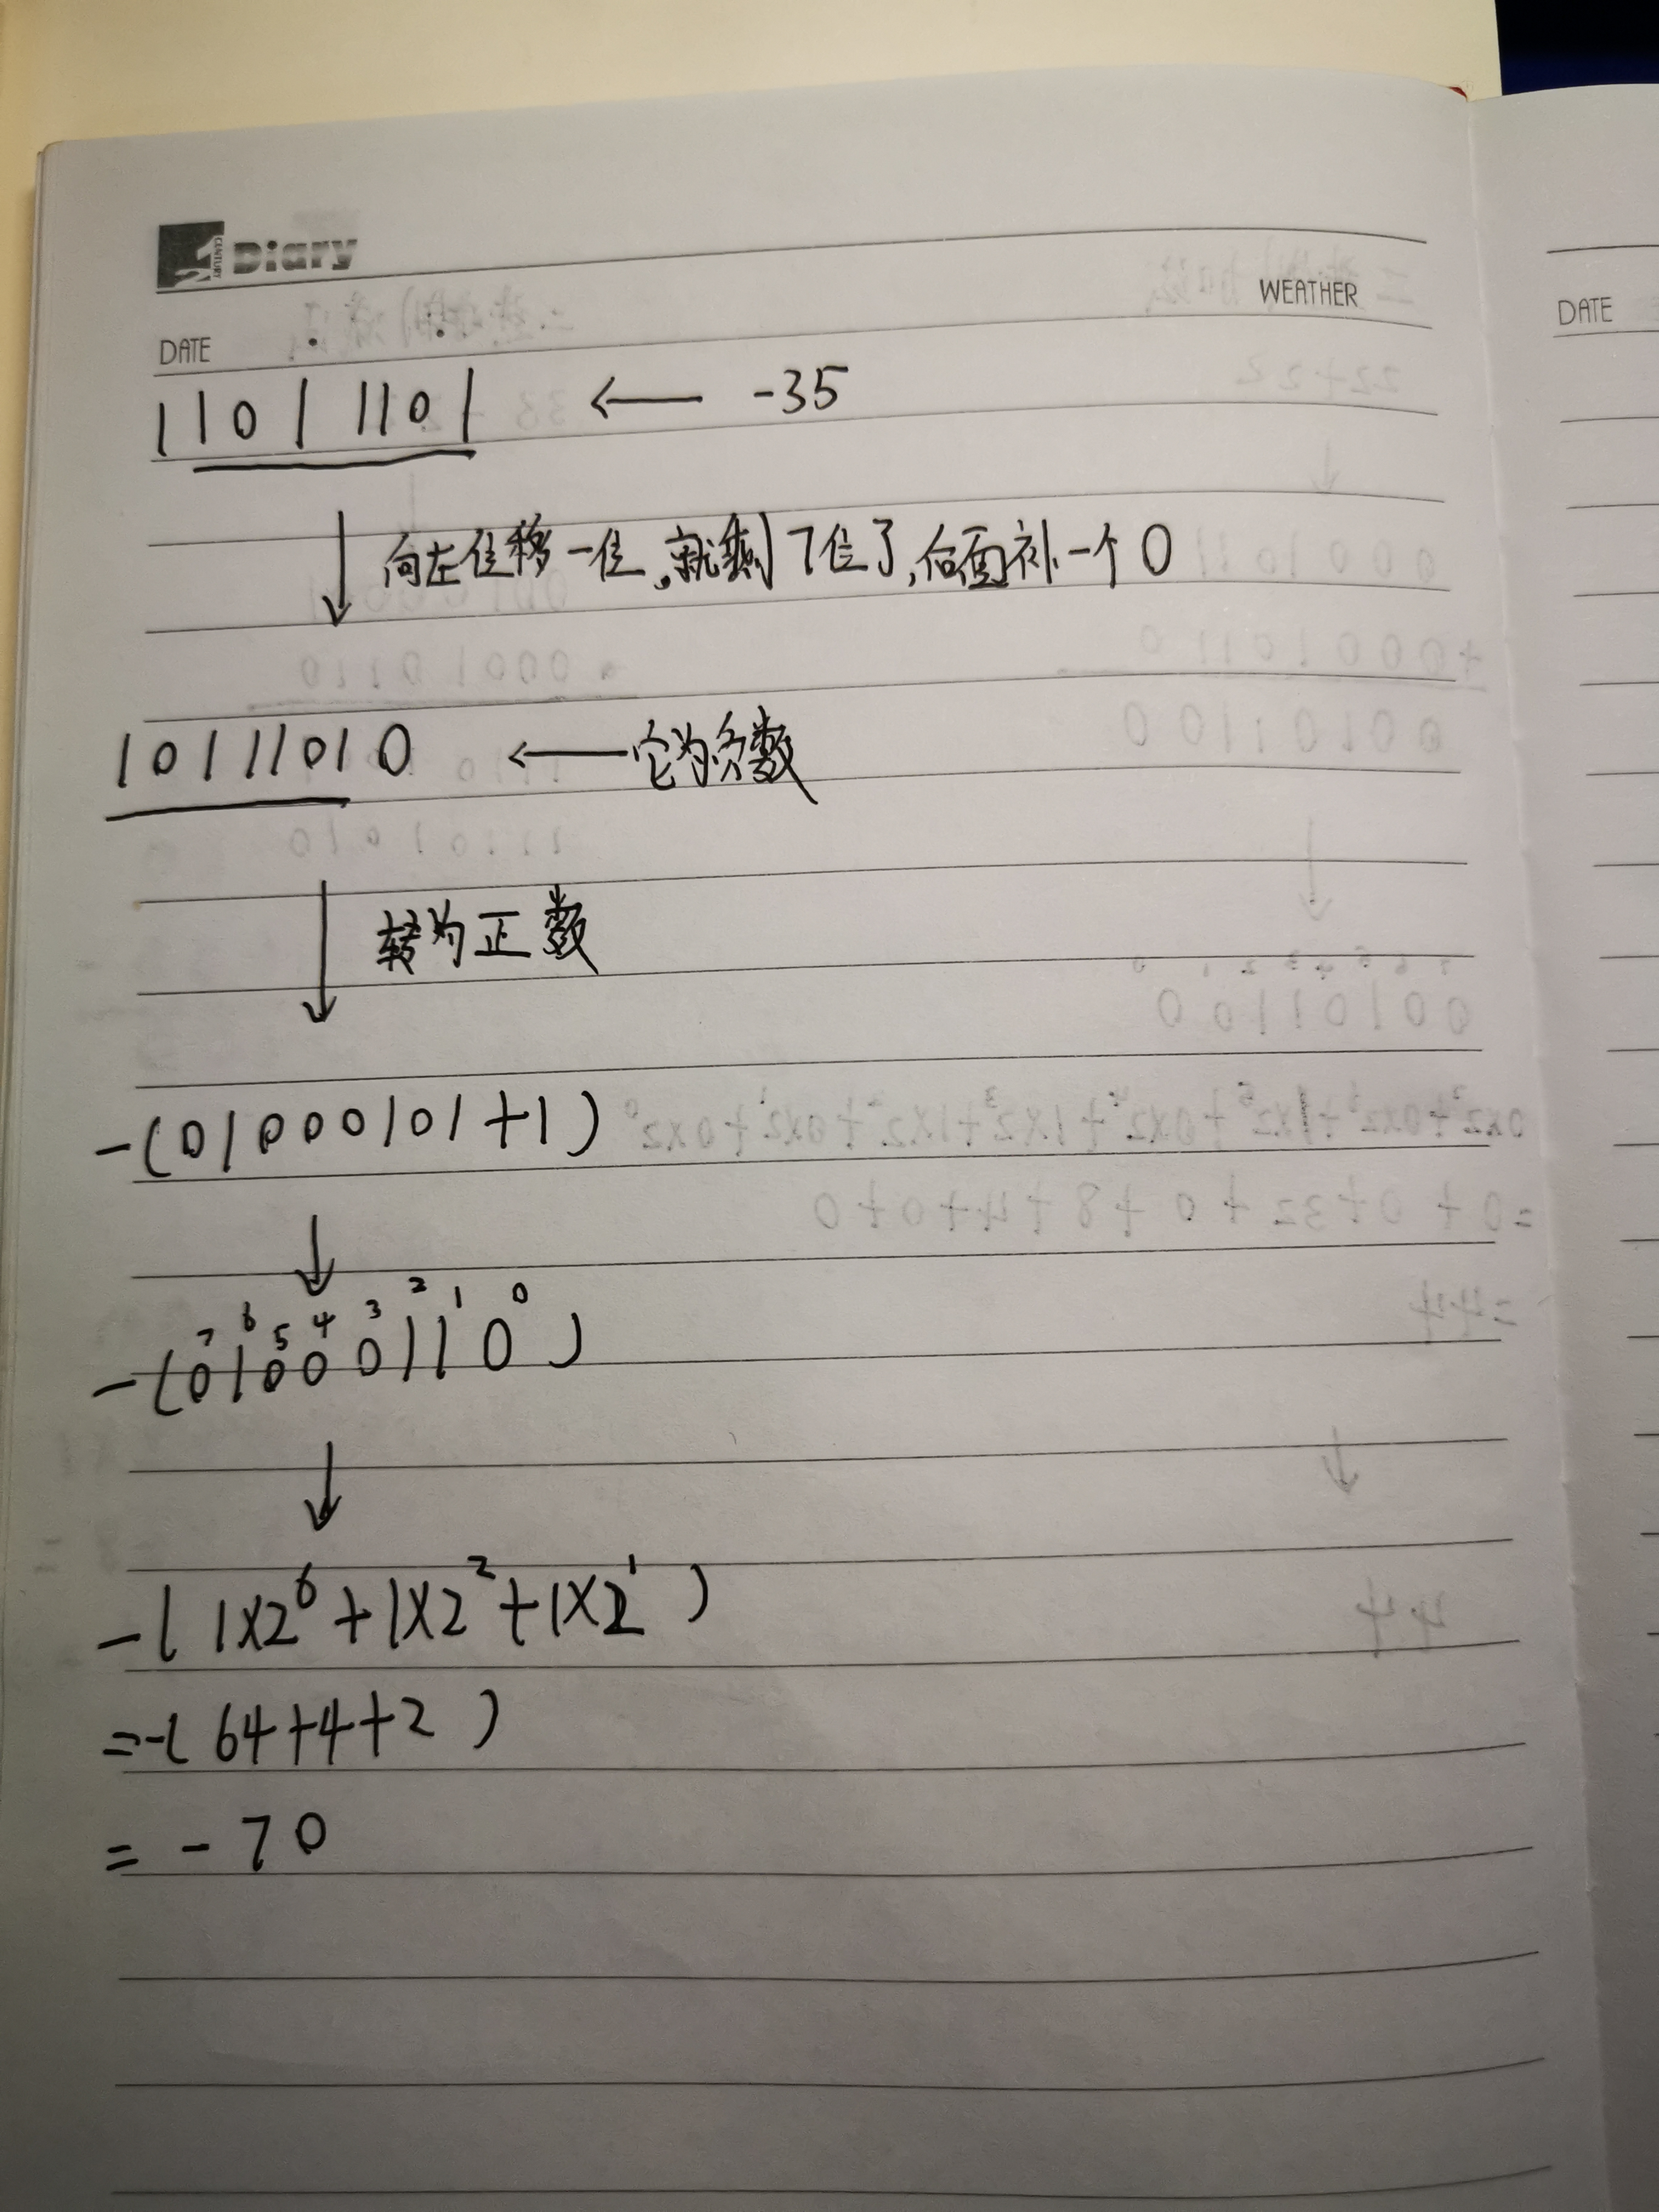 21 CENTURY Diary
WEATHER
DATE
DATE
11011101 ← -35
向左位移一位,就剩7位了,后面补一个0
10111010 ← 它为负数
转为正数
-(01000101+1)
7 6 5 4 3 2 1 0
-(01000110)
-(1×2⁶+1×2²+1×2¹)
=-(64+4+2)
= -70